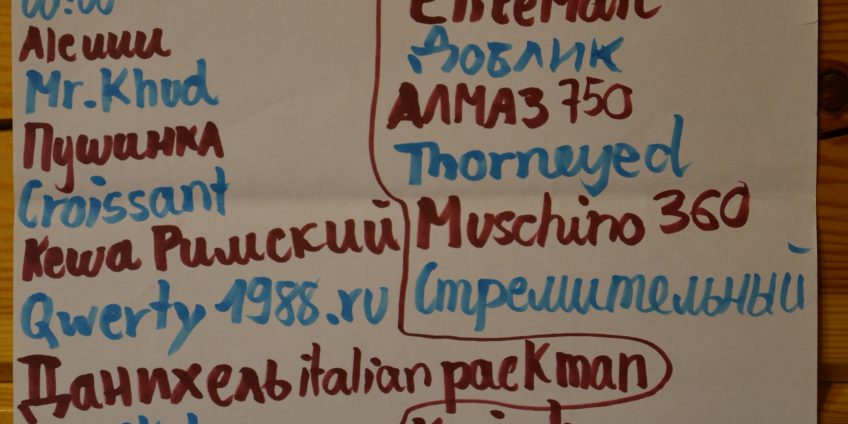 Aleшиш
Mr.Khud
Пушинка
Croissant
Кеша Римский
Qwerty 1988.ru
Данихель italian packman
Доблик
АЛМАЗ 750
Thorneyed
Muschino 360
Стремительный